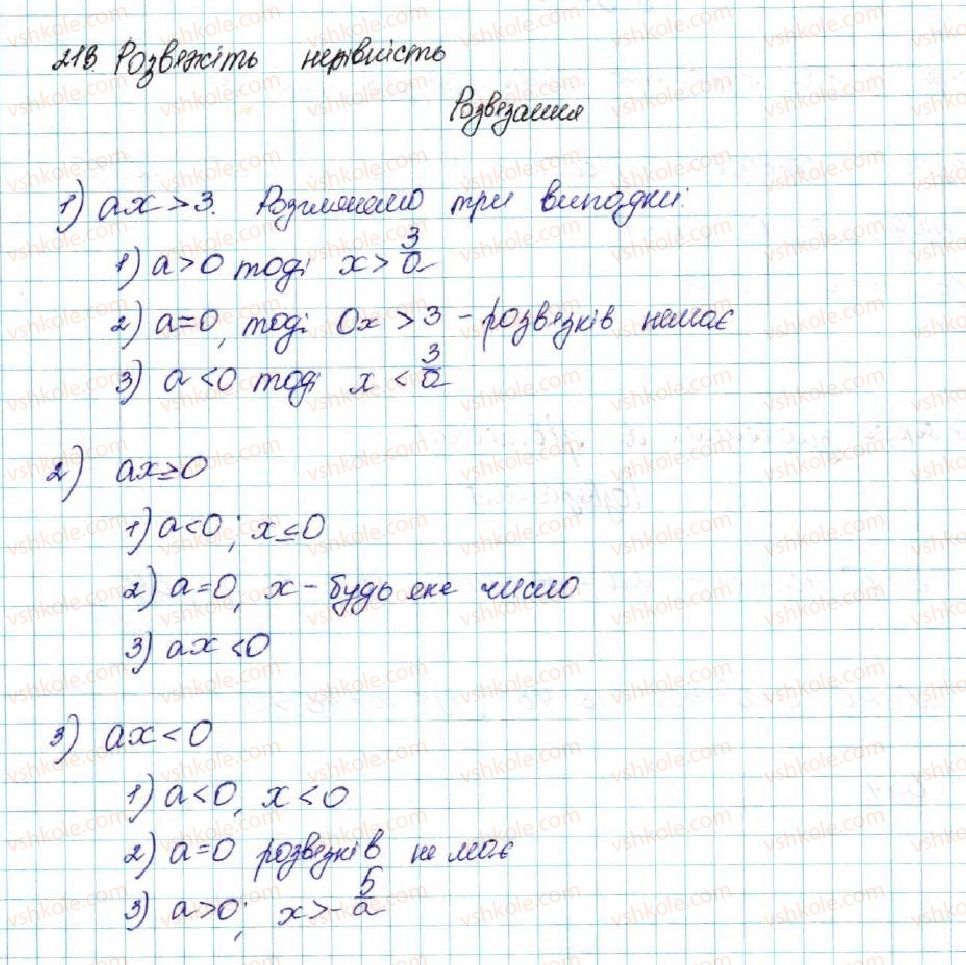 218. Розвяжіть нерівність
Розвязання
1) ax > 3. Розглянемо три випадки:
1) a > 0 тоді x > 3/a
2) a = 0, тоді 0x > 3 - розвязків немає
3) a < 0 тоді x < 3/a
2) ax ≥ 0
1) a < 0; x ≤ 0
2) a = 0, x - будь яке число
3) ax < 0
3) ax < 0
1) a < 0, x < 0
2) a = 0 розвязків не має
3) a > 0; x > - 5/a
vshkole.com